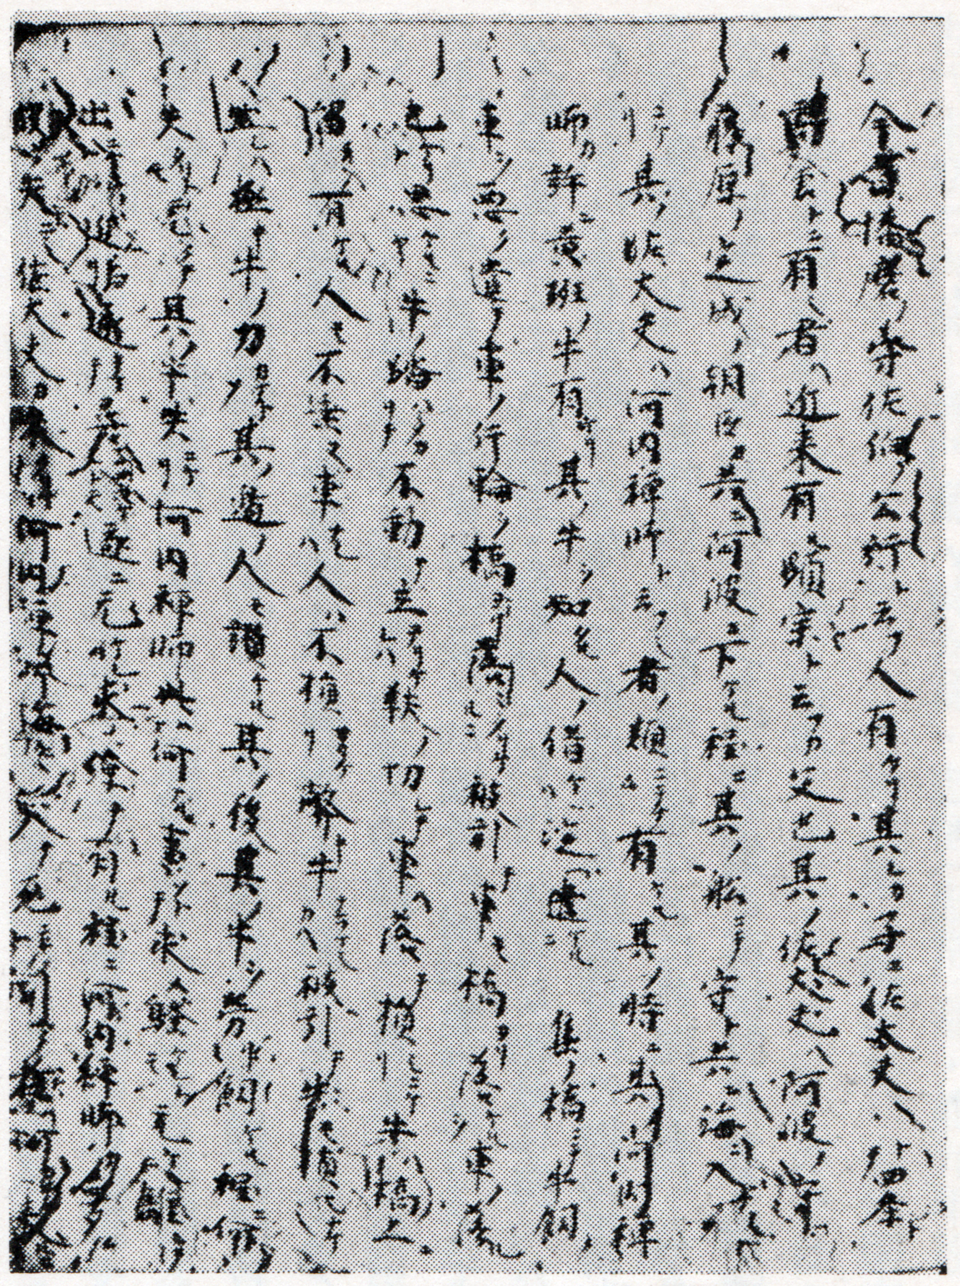 今昔播磨ノ守佐伯ノ公行ト云フ人有ケリ其レカ子ニ佐大夫トテ四条ト
高倉トニ有シ者ハ近来有ル顕宗ト云フカ父也其ノ佐大夫ハ阿波ノ守
藤原ノ定成ノ朝臣カ共ニ阿波ニ下ケル程ニ其ノ船ニテ守ト共ニ海ニ入テ死
ニケリ其ノ佐大夫ハ河内禅師ト云シ者ノ類ニテナム有ケル其ノ時ニ其ノ河内禅
師カ許ニ黄斑ノ牛有ケリ其ノ牛ヲ知タル人ノ借ケレハ淀ヘ遣ケルニ 集ノ橋ニテ牛飼ノ
車ヲ悪ク遣テ車ノ片輪ヲ橋ヨリ落シタリケルニ被引テ車モ橋ヨリ落ケルヲ車ノ落ル
也ケリト思ケルニヤ牛ノ踏ハタカリテ不動テ立テリケレハ鞅ノ切レテ車ハ落テ損シニケリ牛ハ橋ノ上ニ
留テソ有ケル人モ不乗ヌ車ナレハ人ハ不損サリケリ弊キ牛ナラマシカハ被引テ牛モ損シナマシ
然レハ極キ牛ノ力カナトソ其ノ辺ノ人モ讃ケル其ノ後其ノ牛ヲ労リ飼ケル程ニ何ニシテ
失タリト云フ事无クテ其ノ牛失ニケリ河内禅師此ハ何ナル事ソト求メ騒ケレトモ无ケレハ離レテ
出ニケルカト近クヨリ遠キマテ尋サセケレトモ遂ニ无ケレハ求メ繚テ有ル程ニ河内禅師カ夢ニ
彼ノ失ニシ佐大夫カ来タリケレハ河内禅師海ニ落入テ死ニキト聞ク者ハ何カテ